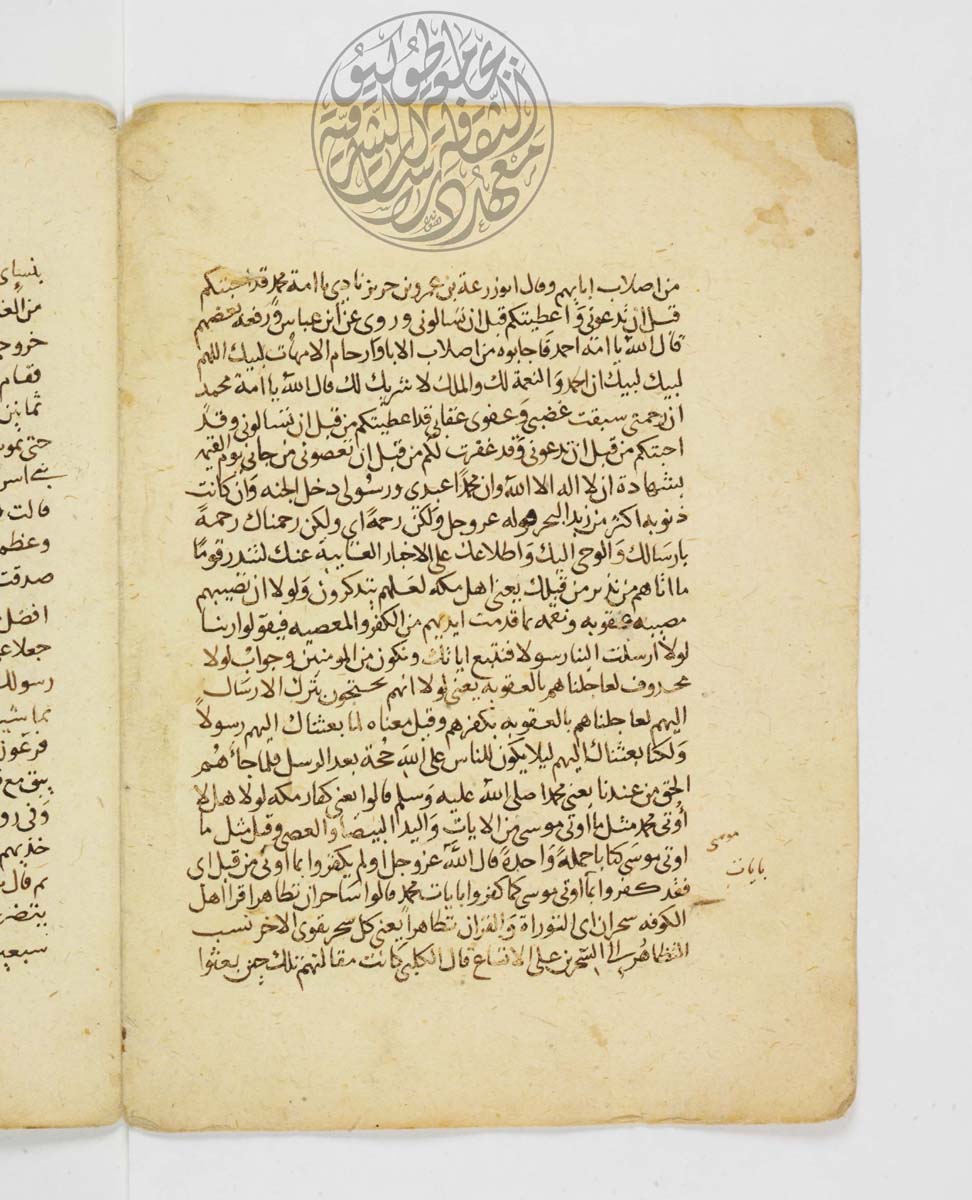 من اصلاب ابايهم وقال ابو زرعة بن عمرو بن جرير نادي يا امة محمد قد اجبتكم
قبل ان تدعونى واعطيتكم قبل ان تسالونى وروى عن ابن عباس ورفعه بعضهم
قال الله يا امة احمد فاجابوه من اصلاب الابا وارحام الامهات لبيك اللهم
لبيك لبيك ان الحمد والنعمة لك والملك لا شريك لك قال الله يا امة محمد
ان رحمتى سبقت غضبى وعفوى عقابى قد اعطيتكم من قبل ان تسالونى وقد
اجبتكم من قبل ان تدعونى وقد غفرت لكم من قبل ان تعصونى من جانى يوم القيمه
بشهادة ان لا اله الا الله وان محمدا عبدى ورسولى دخل الجنه وان كانت
ذنوبه اكثر من زبد البحر قوله عز وجل ولكن رحمة اى ولكن رحمناك رحمة
بارسالك والوحى اليك واطلاعك على الاخبار الغايبة عنك لتنذر قوما
ما اتاهم من نذير من قبلك يعنى اهل مكه لعلهم يتذكرون ولولا ان تصيبهم
مصيبه عقوبه ونقمه بما قدمت ايديهم من الكفر والمعصيه فيقولوا ربنا
لولا ارسلت الينا رسولا فنتبع اياتك ونكون من المومنين وجواب لولا
محذوف لعاجلناهم بالعقوبه يعنى لولا انهم يحتجون بترك الارسال
اليهم لعاجلناهم بالعقوبه بكفرهم وقيل معناه لما بعثناك اليهم رسولا
ولكنا بعثناك اليهم ليلا يكون للناس على الله حجة بعد الرسل فلما جاءهم
الحق من عندنا يعنى محمدا صلى الله عليه وسلم قالوا يعنى كفار مكه لولا هلا
أوتى محمد مثل ما أوتى موسى من الايات واليد البيضا والعصى وقيل مثل ما
اوتى موسى كتابا جملة واحدة قال الله عز وجل اولم يكفروا بما اوتى من قبل اى
فقد كفروا بما اوتى موسى كما كفروا بايات محمد قالوا ساحران تظاهرا قرا اهل
الكوفه سحران اى التوراة والقران تظاهرا يعنى كل سحر يقوى الاخر نسب
التظاهر الى السحرين على الاتساع قال الكلبى كانت مقالتهم تلك حين بعثوا
موسى
بايات